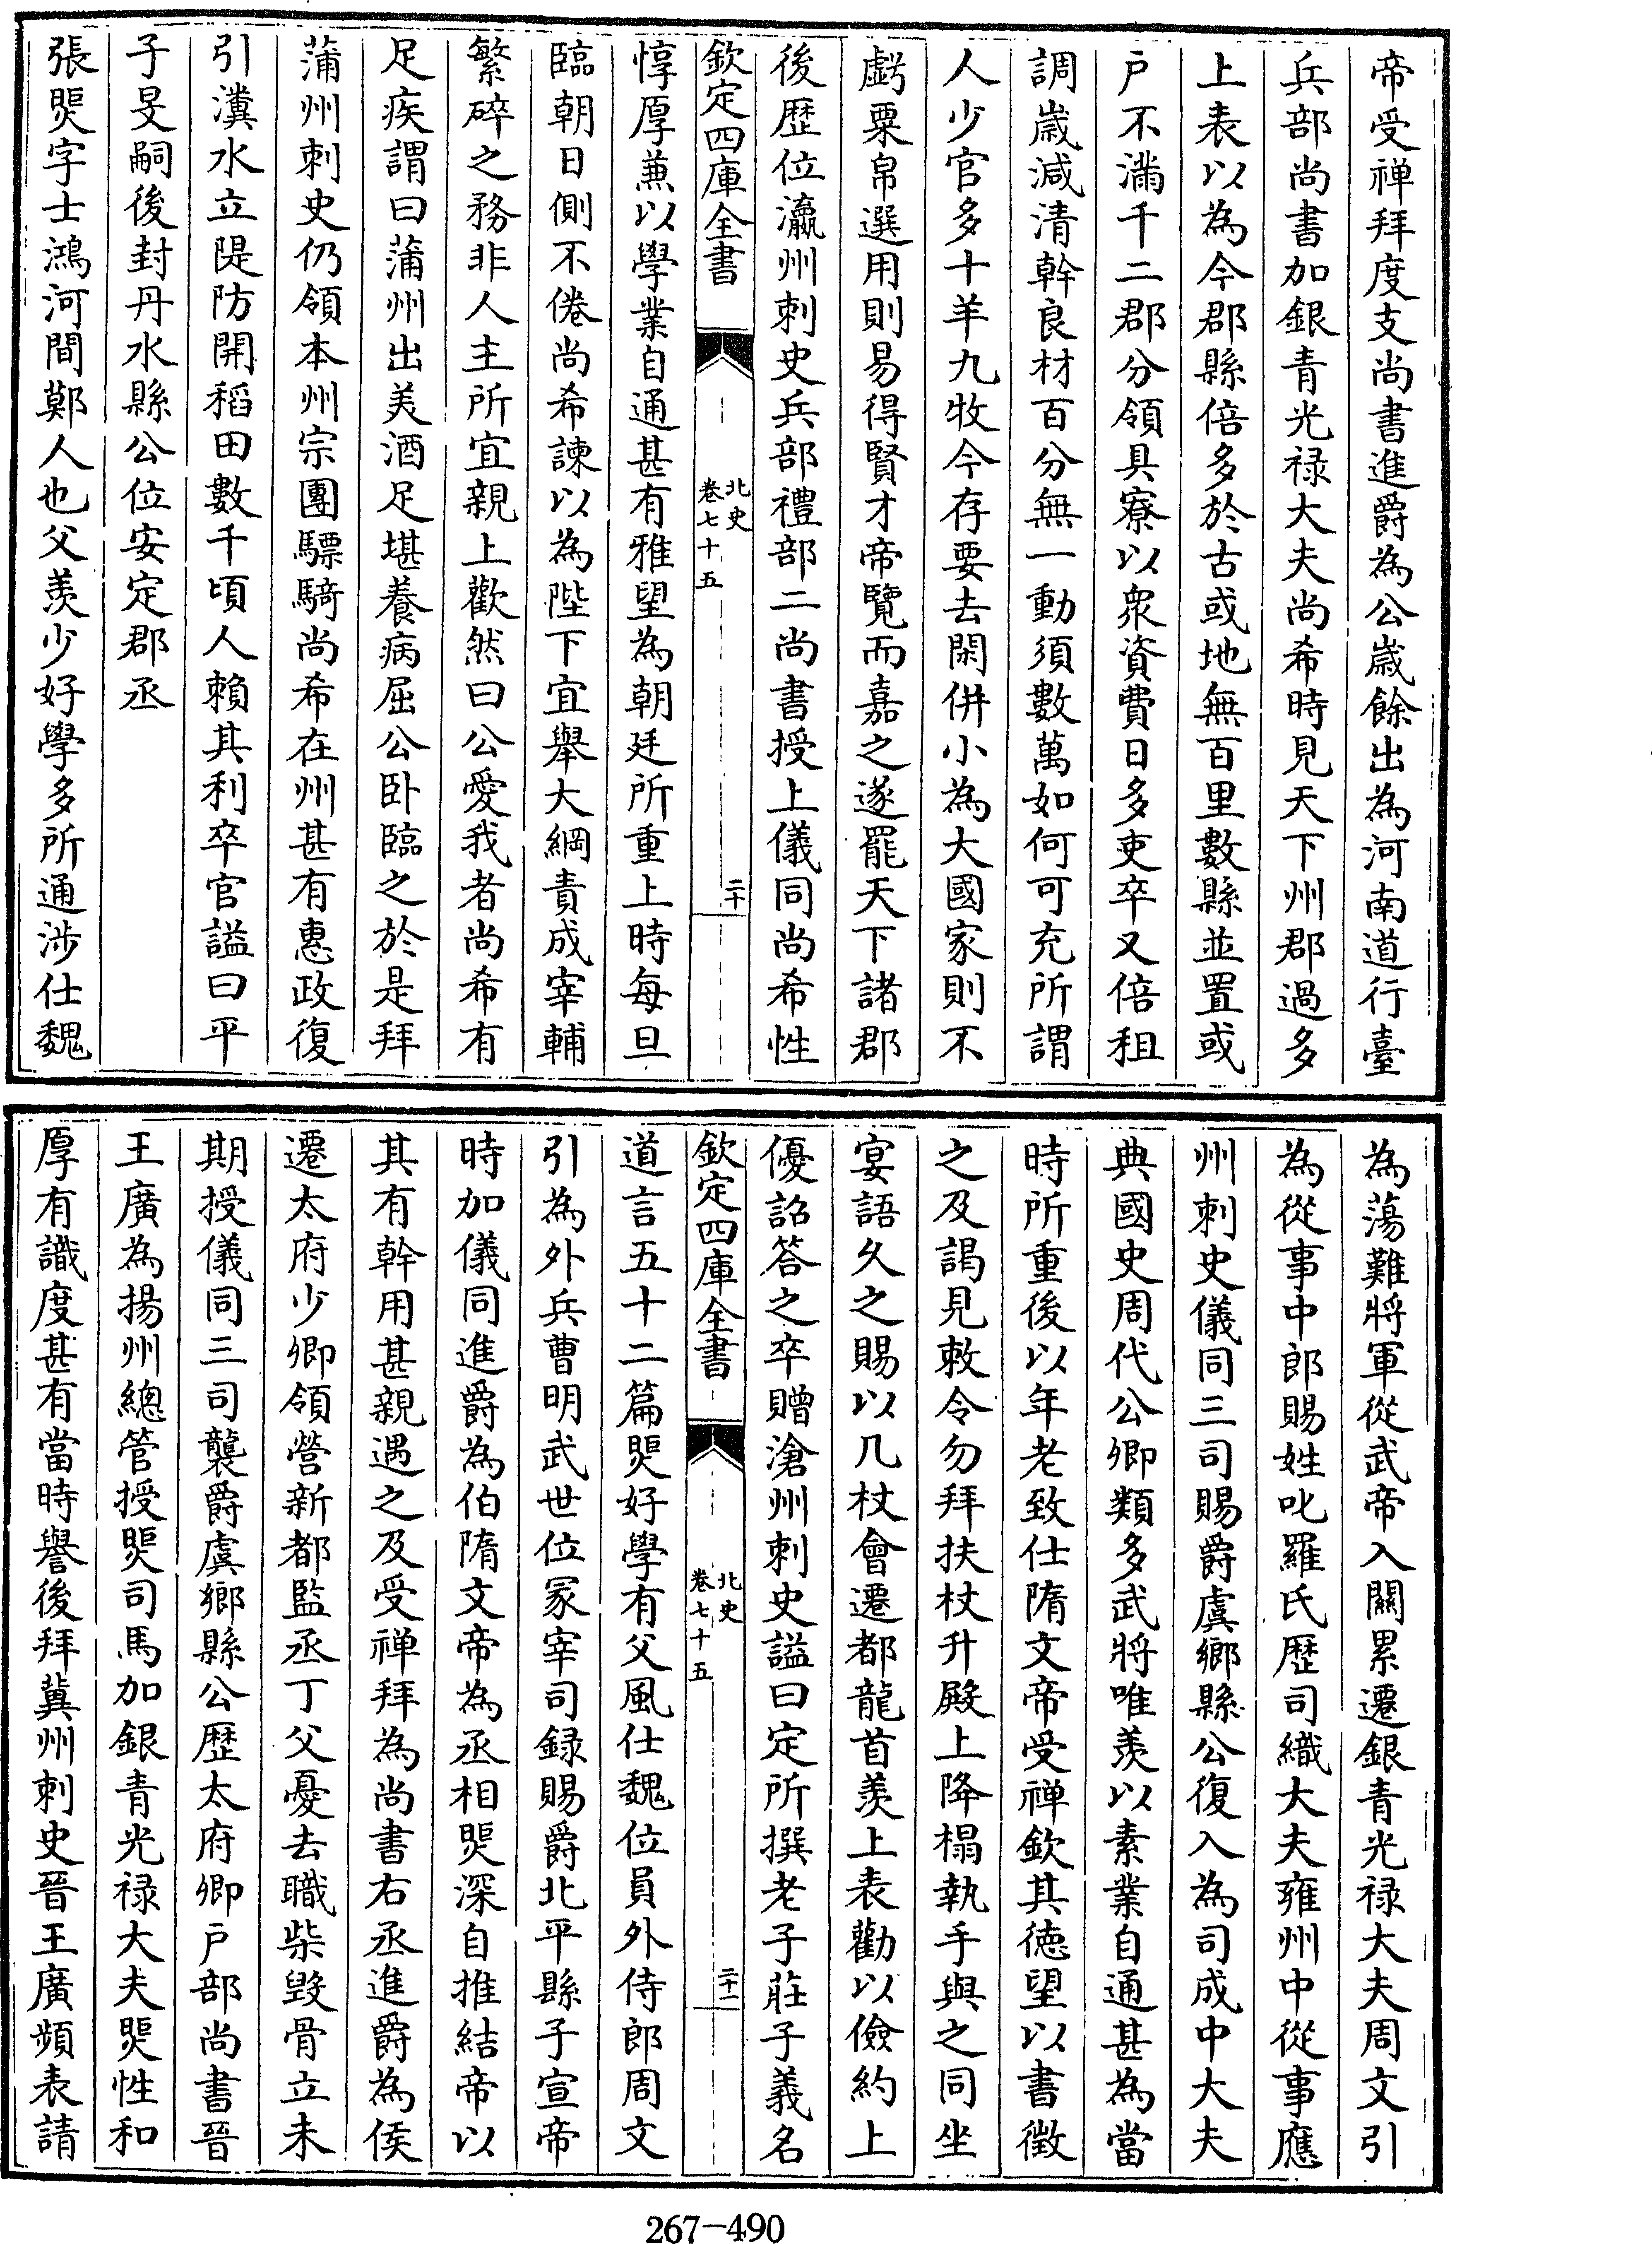 帝受禅拜度支尚書進爵為公歳餘出為河南道行臺
兵部尚書加銀青光禄大夫尚希時見天下州郡過多
上表以為今郡縣倍多於古或地無百里數縣並置或
戸不滿千二郡分領具寮以衆資費日多吏卒又倍租
調歳減清幹良材百分無一動須數萬如何可充所謂
人少官多十羊九牧今存要去閑併小為大國家則不
虧粟帛選用則易得賢才帝覽而嘉之遂罷天下諸郡
後歴位瀛州刺史兵部禮部二尚書授上儀同尚希性
欽定四庫全書
北史
卷七十五
二十
惇厚兼以學業自通甚有雅望為朝廷所重上時每旦
臨朝日側不倦尚希諫以為陛下宜舉大綱責成宰輔
繁碎之務非人主所宜親上歡然曰公愛我者尚希有
足疾謂曰蒲州出美酒足堪養病屈公卧臨之於是拜
蒲州刺史仍領本州宗團驃騎尚希在州甚有惠政復
引瀵水立隄防開稻田數千頃人賴其利卒官謚曰平
子旻嗣後封丹水縣公位安定郡丞
張煚字士鴻河間鄭人也父羨少好學多所通涉仕魏
為蕩難將軍從武帝入關累遷銀青光禄大夫周文引
為從事中郎賜姓叱羅氏歴司織大夫雍州中從事應
州刺史儀同三司賜爵虞鄉縣公復入為司成中大夫
典國史周代公卿類多武將唯羨以素業自通甚為當
時所重後以年老致仕隋文帝受禅欽其德望以書徵
之及謁見敕令勿拜扶杖升殿上降榻執手與之同坐
宴語久之賜以几杖會遷都龍首羨上表勸以儉約上
優詔答之卒贈滄州刺史謚曰定所撰老子莊子義名
欽定四庫全書
北史
卷七十五
二十一
道言五十二篇煚好學有父風仕魏位員外侍郎周文
引為外兵曹明武世位冢宰司録賜爵北平縣子宣帝
時加儀同進爵為伯隋文帝為丞相煚深自推結帝以
其有幹用甚親遇之及受禅拜為尚書右丞進爵為侯
遷太府少卿領營新都監丞丁父憂去職柴毀骨立未
期授儀同三司襲爵虞鄉縣公歴太府卿戸部尚書晉
王廣為揚州總管授煚司馬加銀青光禄大夫煚性和
厚有識度甚有當時譽後拜冀州刺史晉王廣頻表請
267-490